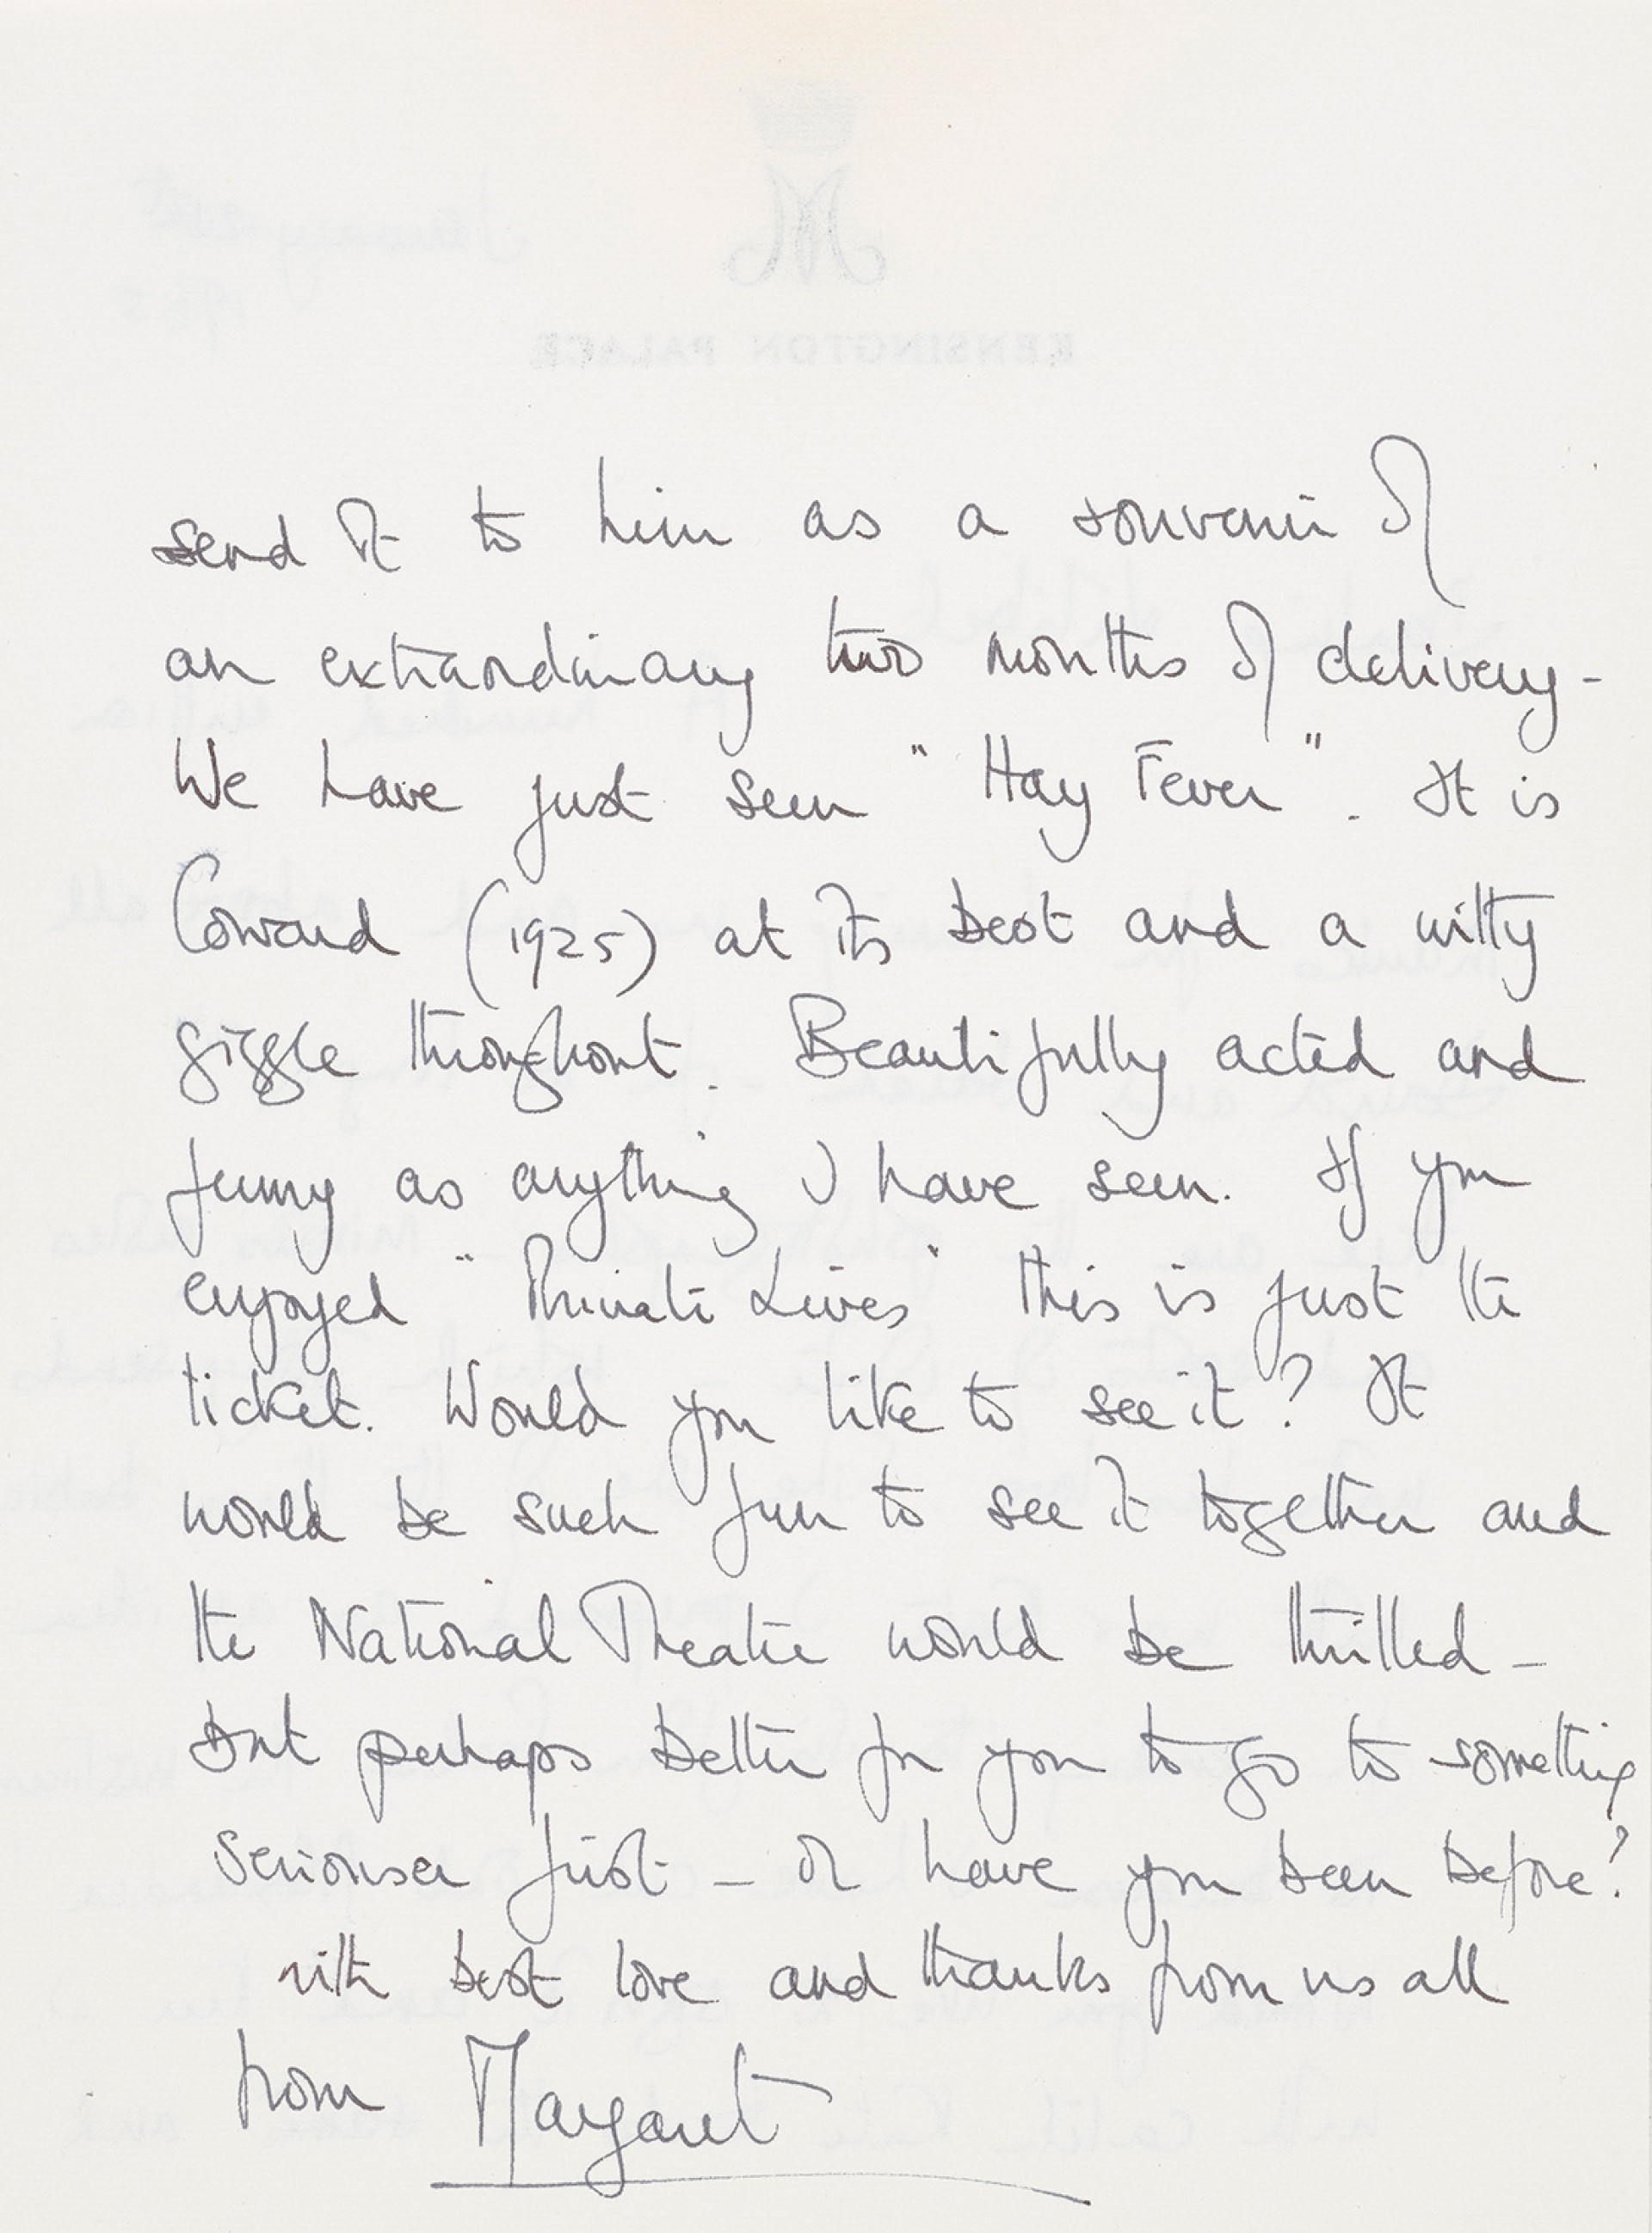 send it to him as a souvenir of
an extraordinary two months of delivery -
We have just seen "Hay Fever". It is
Coward (1925) at its best and a witty
giggle throughout. Beautifully acted and
funny as anything I have seen. If you
enjoyed "Private Lives" this is just the
ticket. Would you like to see it? It
would be such fun to see it together and
the National Theatre would be thrilled -
but perhaps better for you to go to something
seriouser first - or have you been before?
with best love and thanks from us all
from Margaret